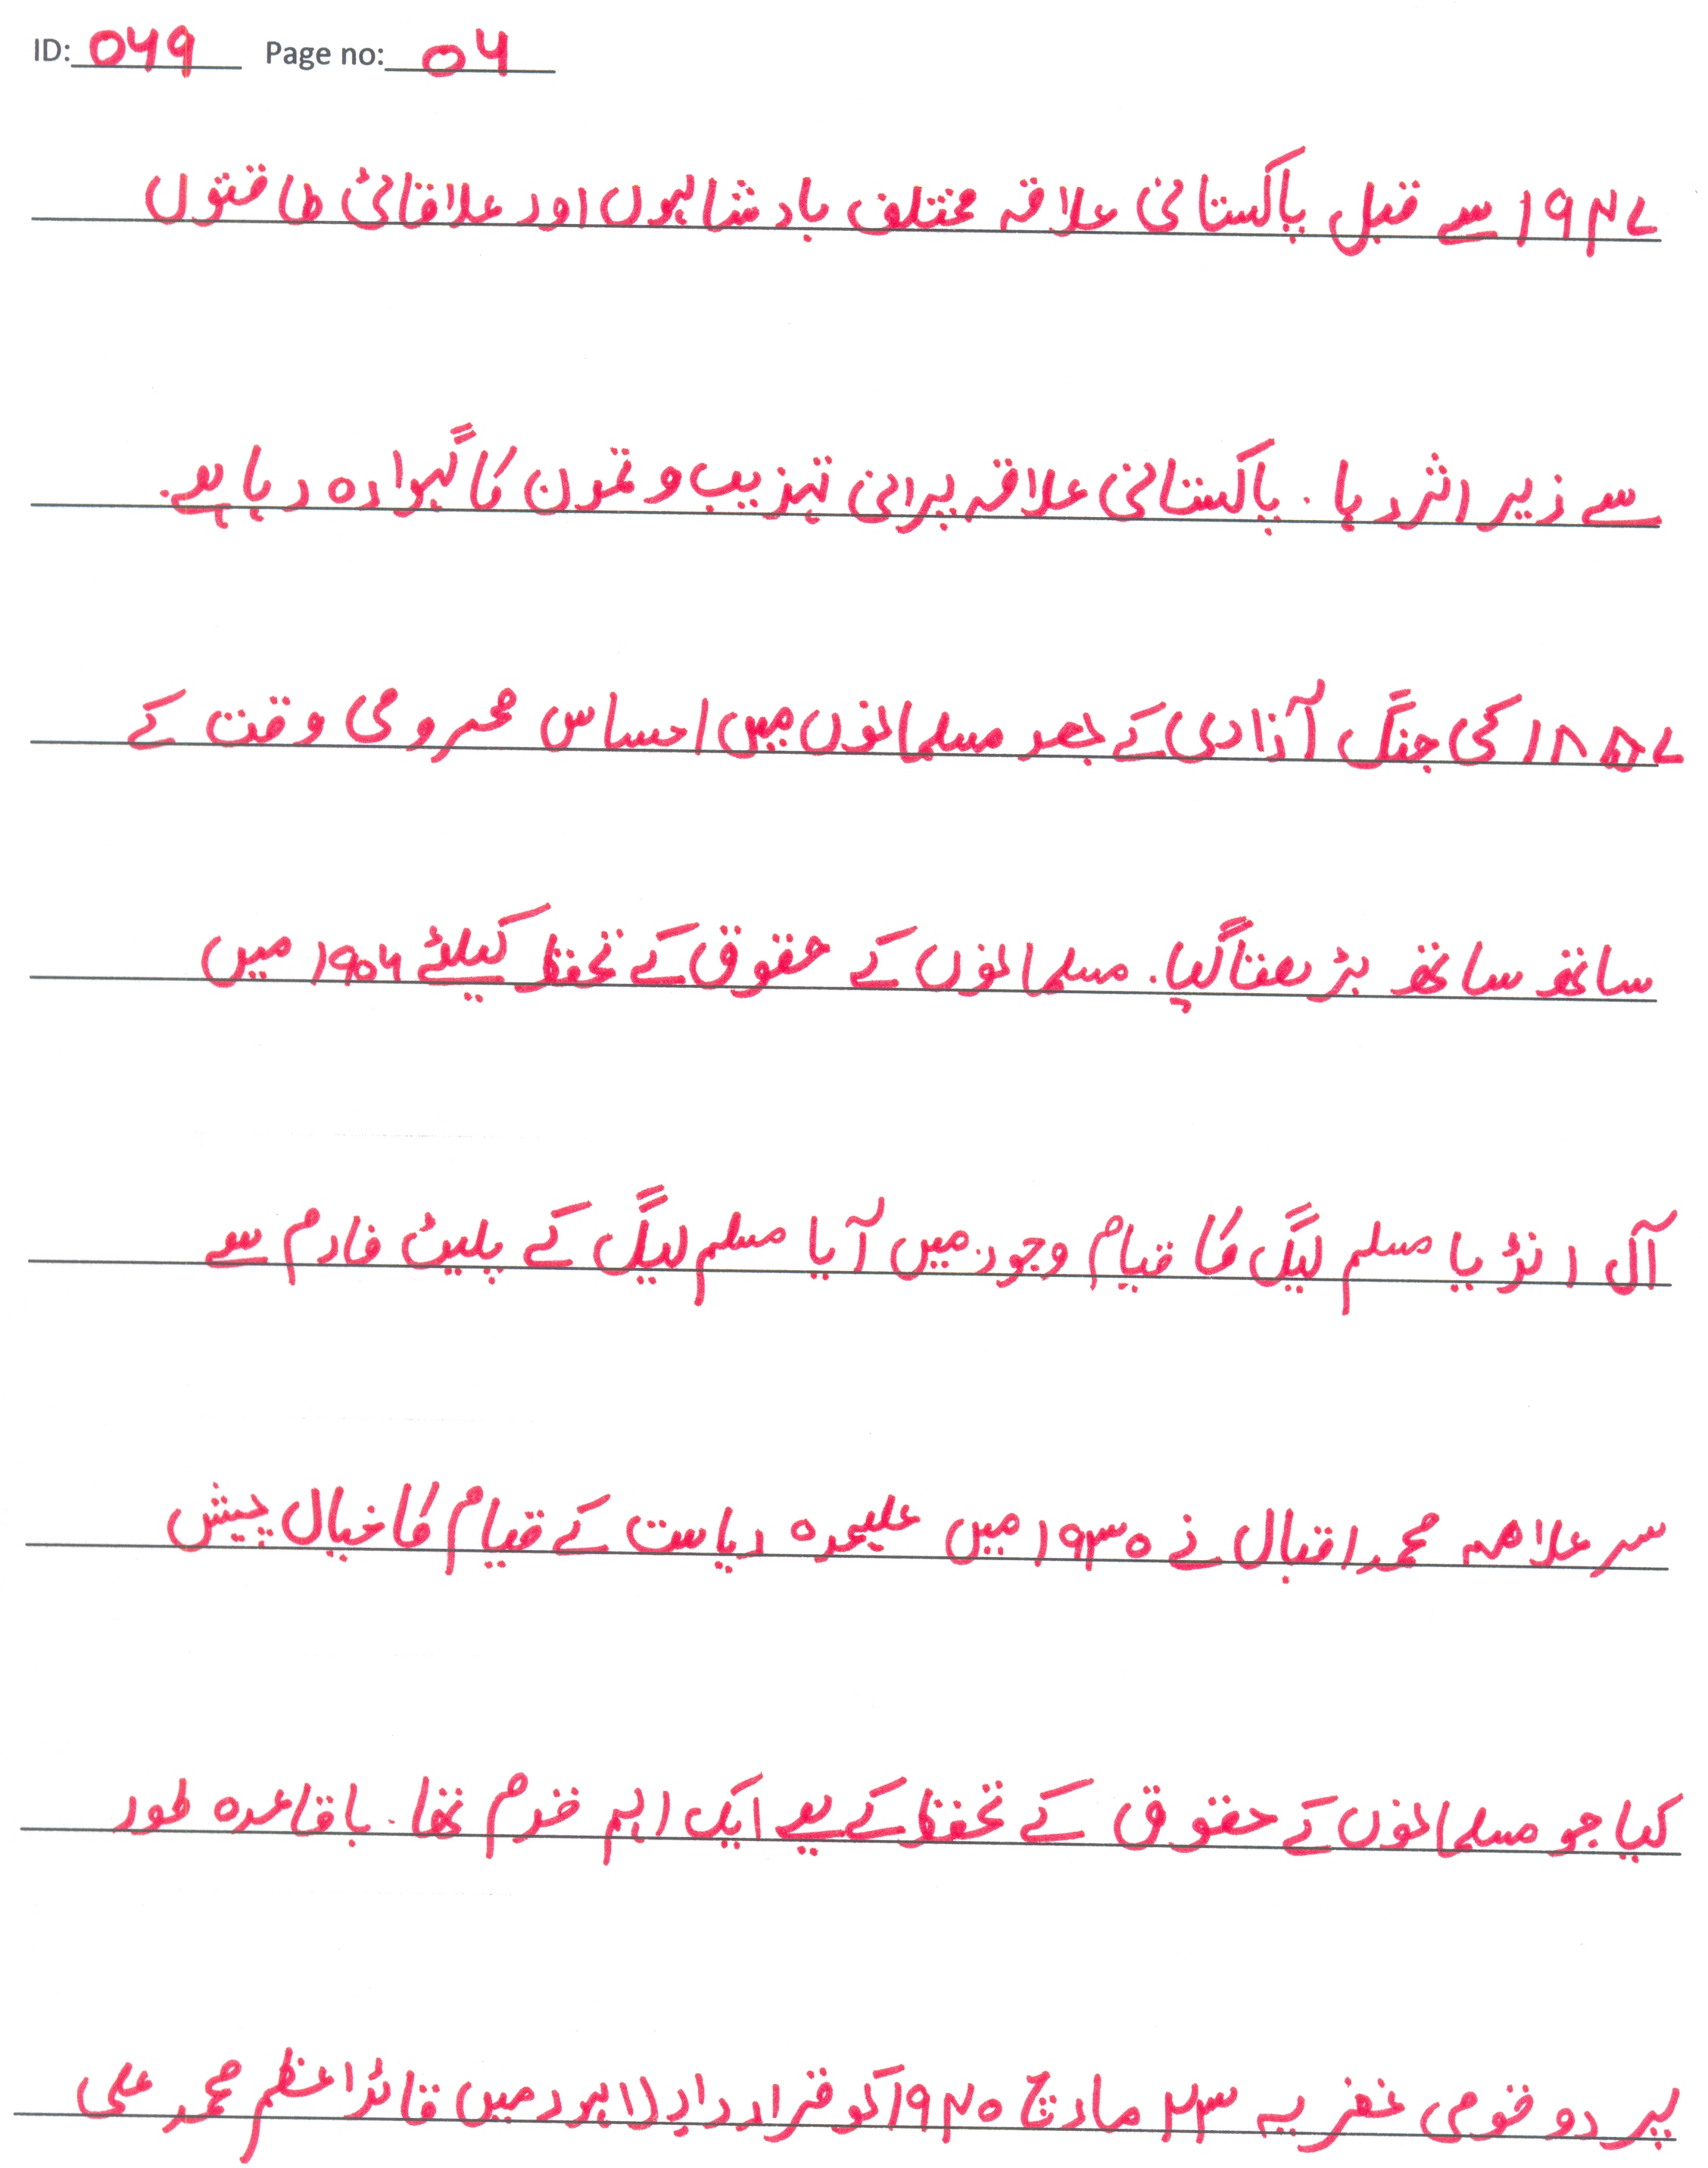 ID: 049 Page no: 04
۱۹۴۷ سے قبل پاکستانی علاقہ مختلف بادشاہوں اور علاقائی طاقتوں
سے زیر اثر رہا . پاکستانی علاقہ پرانی تہذیب و تمدن کا گہوارہ رہا ہے.
۱۸۵۷ کی جنگ آزادی کے بعد مسلمانوں میں احساس محرومی وقت کے
ساتھ ساتھ بڑھتا گیا. مسلمانوں کے حقوق کے تحفظ کیلئے ۱۹۰۶ میں
آل انڈیا مسلم لیگ کا قیام وجود میں آیا مسلم لیگ کے پلیٹ فارم سے
سر علامہ محمد اقبال نے ۱۹۳۰ میں علیحدہ ریاست کے قیام کا خیال پیش
کیا جو مسلمانوں کے حقوق کے تحفظ کے لیے ایک اہم قدم تھا. باقاعدہ طور
پر دو قومی نظریہ ۲۳ مارچ ۱۹۴۰ کو قرارداد لاہور میں قائداعظم محمد علی